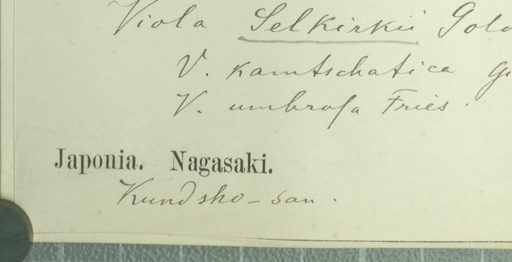 Viola Selkirkii Gold
V. kamtschatica Gi
V. umbrosa Fries.
Japonia. Nagasaki.
Kundsho-san.